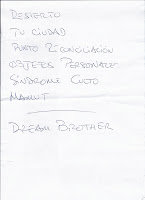 DESIERTO
TU CIUDAD
PUNTO RECONCILIACIÓN
OBJETOS PERSONALES
SÍNDROME CULTO
MAMUT
DREAM BROTHER